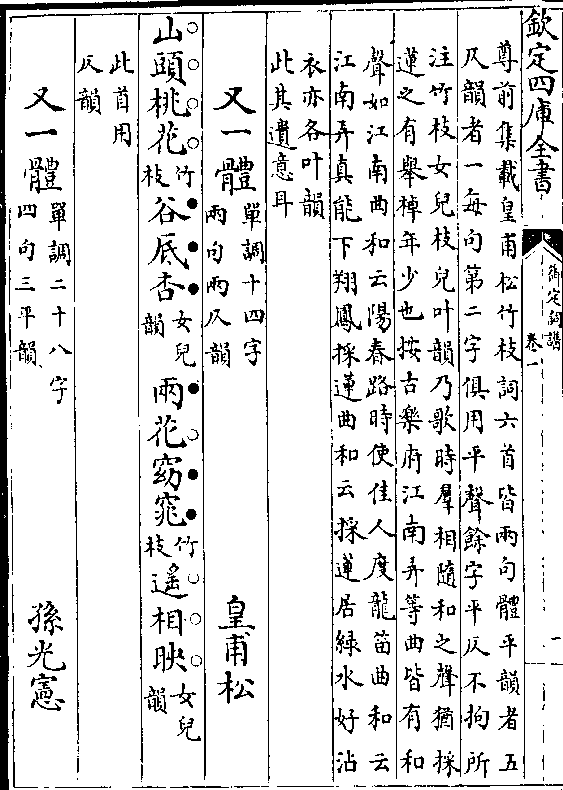 欽定四庫全書
御定詞譜
卷一
一
尊前集載皇甫松竹枝詞六首皆兩句體平韻者五
仄韻者一每句第二字俱用平聲餘字平仄不拘所
注竹枝女兒枝兒叶韻乃歌時羣相隨和之聲猶採
蓮之有舉棹年少也按古樂府江南弄等曲皆有和
聲如江南曲和云陽春路時使佳人度龍笛曲和云
江南弄真能下翔鳳採蓮曲和云採蓮居緑水好沾
衣亦各叶韻
此其遺意耳
又一體 單調十四字
兩句兩仄韻 皇甫松
山頭桃花竹枝谷底杏女兒韻兩花窈窕竹枝遙相映女兒韻
此首用
仄韻
又一體 單調二十八字
四句三平韻 孫光憲